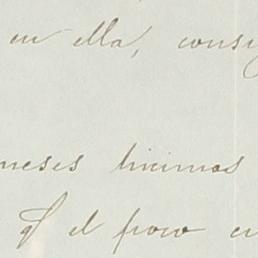 en ella, consi
meses hicimos
el poco en